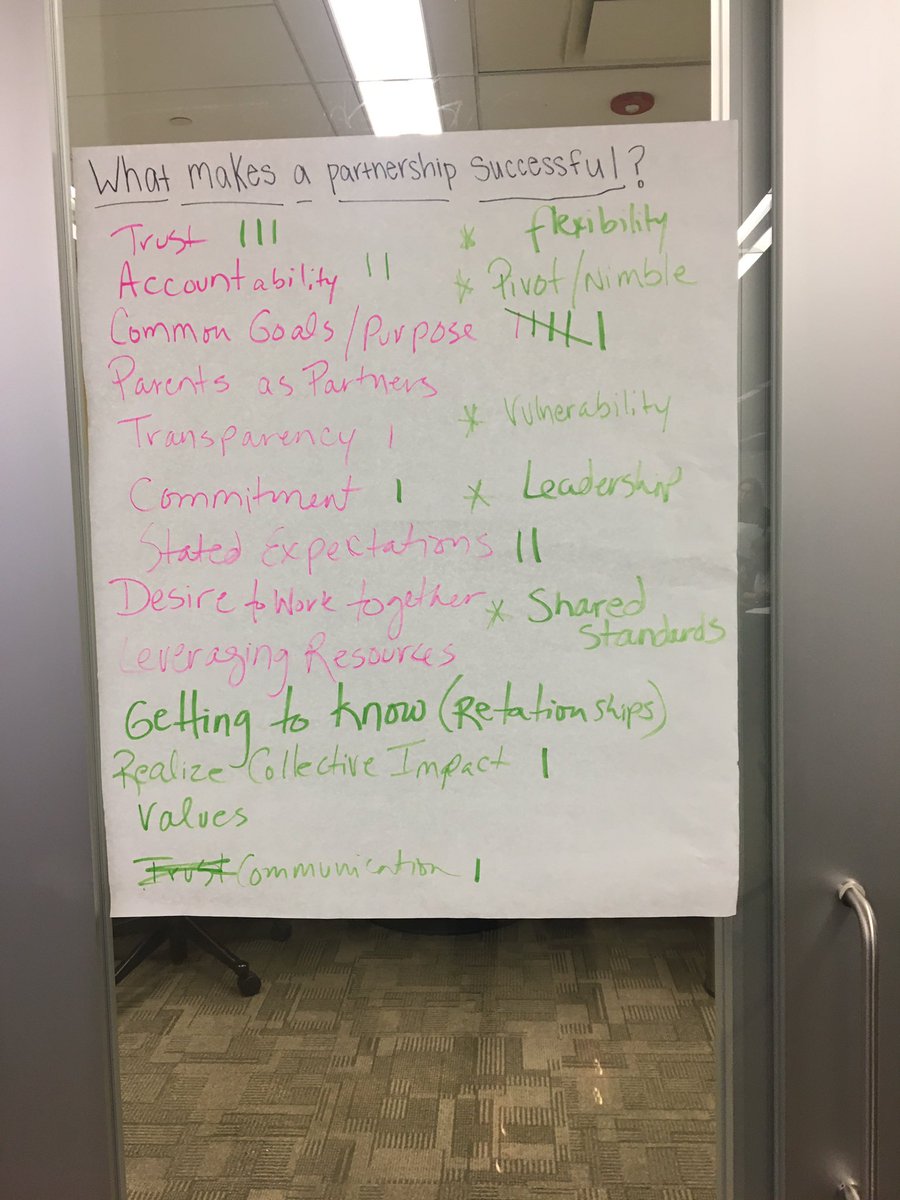 What makes a partnership successful?
Trust III
Accountability II
Common Goals/Purpose IIIII I
Parents as Partners
Transparency I
Commitment I
Stated Expectations II
Desire to Work together
Leveraging Resources
Getting to know (Relationships)
Realize Collective Impact I
Values
Trust Communication I
* flexibility
* Pivot/Nimble
* Vulnerability
* Leadership
* Shared
Standards